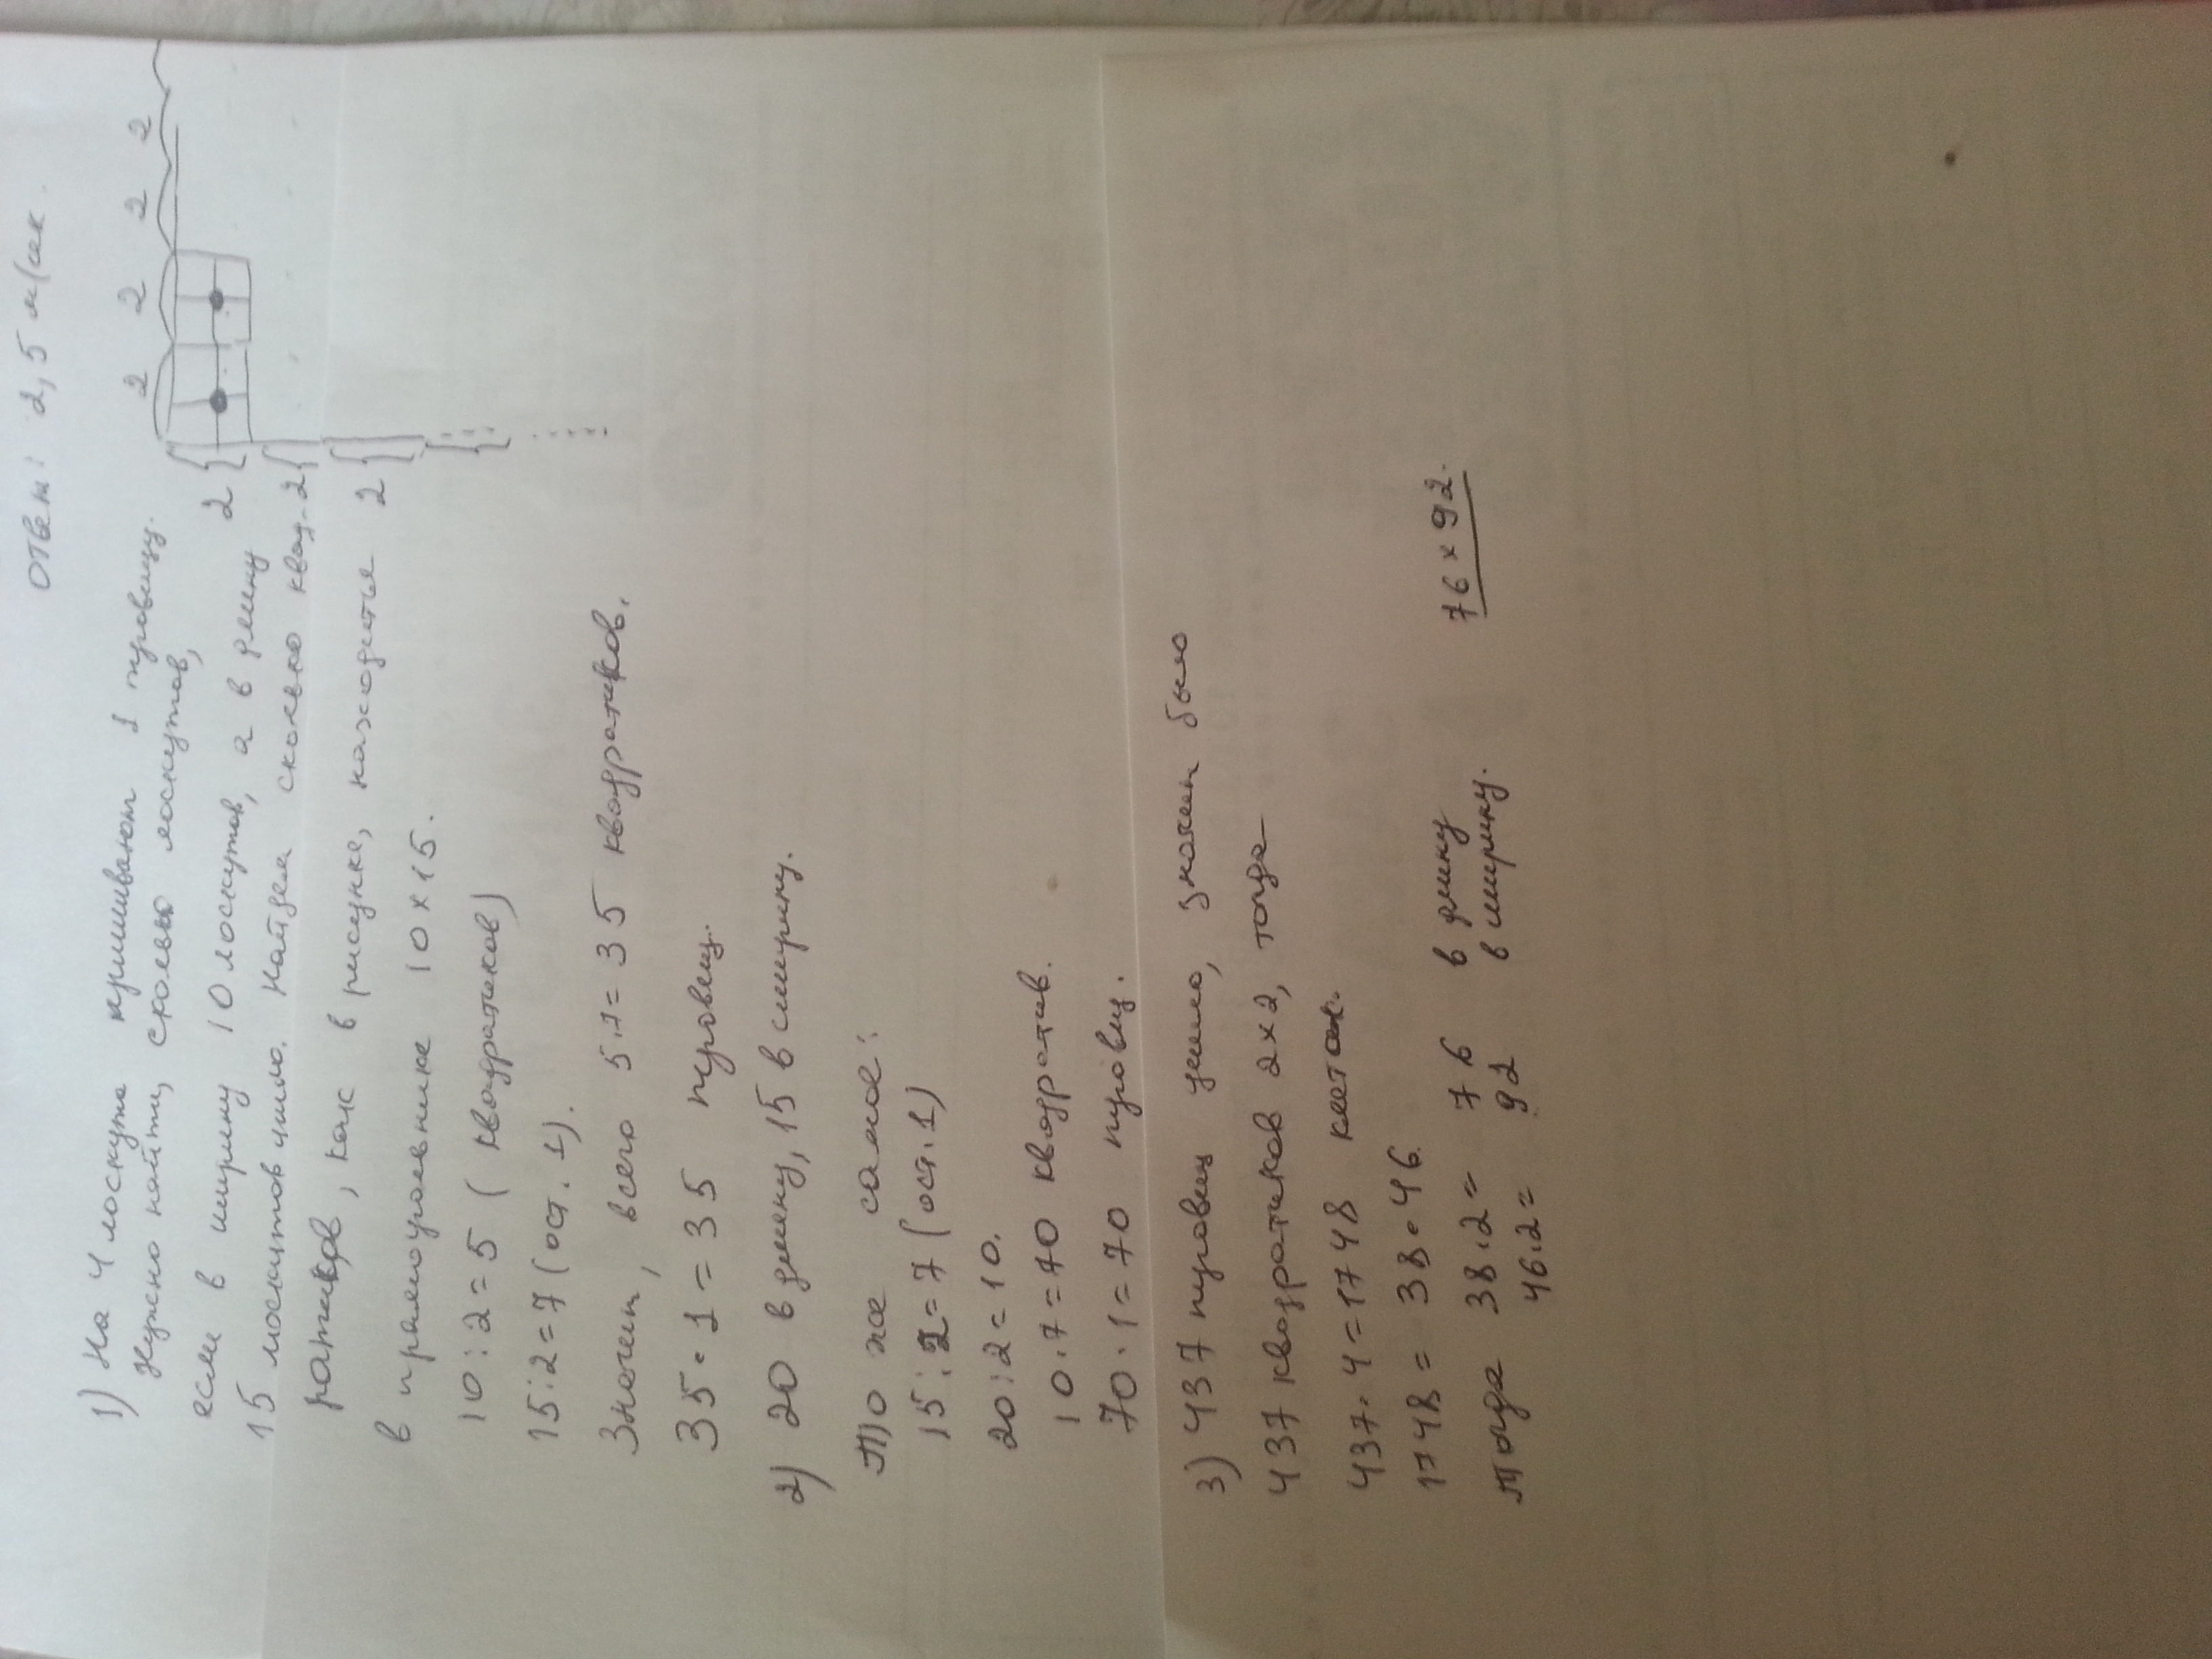 ответ: 2,5 м/сек.
1) На 4 лоскута пришивают 1 пуговицу.
Нужно найти, сколько лоскутов,
если в ширину 10 лоскутов, а в длину
15 лоскутов чило. Найдем сколько квад-
ратиков, как в рисунке, находится
в прямоугольнике 10 x 15.
2 2 2 2
2
2
2
10 : 2 = 5 ( квадратиков)
15 : 2 = 7 (ост. 1).
Значит, всего 5·7 = 35 квадратиков.
35 · 1 = 35 пуговиц.
2) 20 в длину, 15 в ширину.
То же самое:
15 : 2 = 7 (ост. 1)
20 : 2 = 10.
10 · 7 = 70 квадратов.
70 · 1 = 70 пуговиц.
3) 437 пуговиц ушло, значит было
437 квадратиков 2x2, тогда
437 · 4 = 1748 клеток.
1748 = 38 · 46.
Тогда 38·2 = 76 в длину
46·2 = 92 в ширину.
76 x 92.